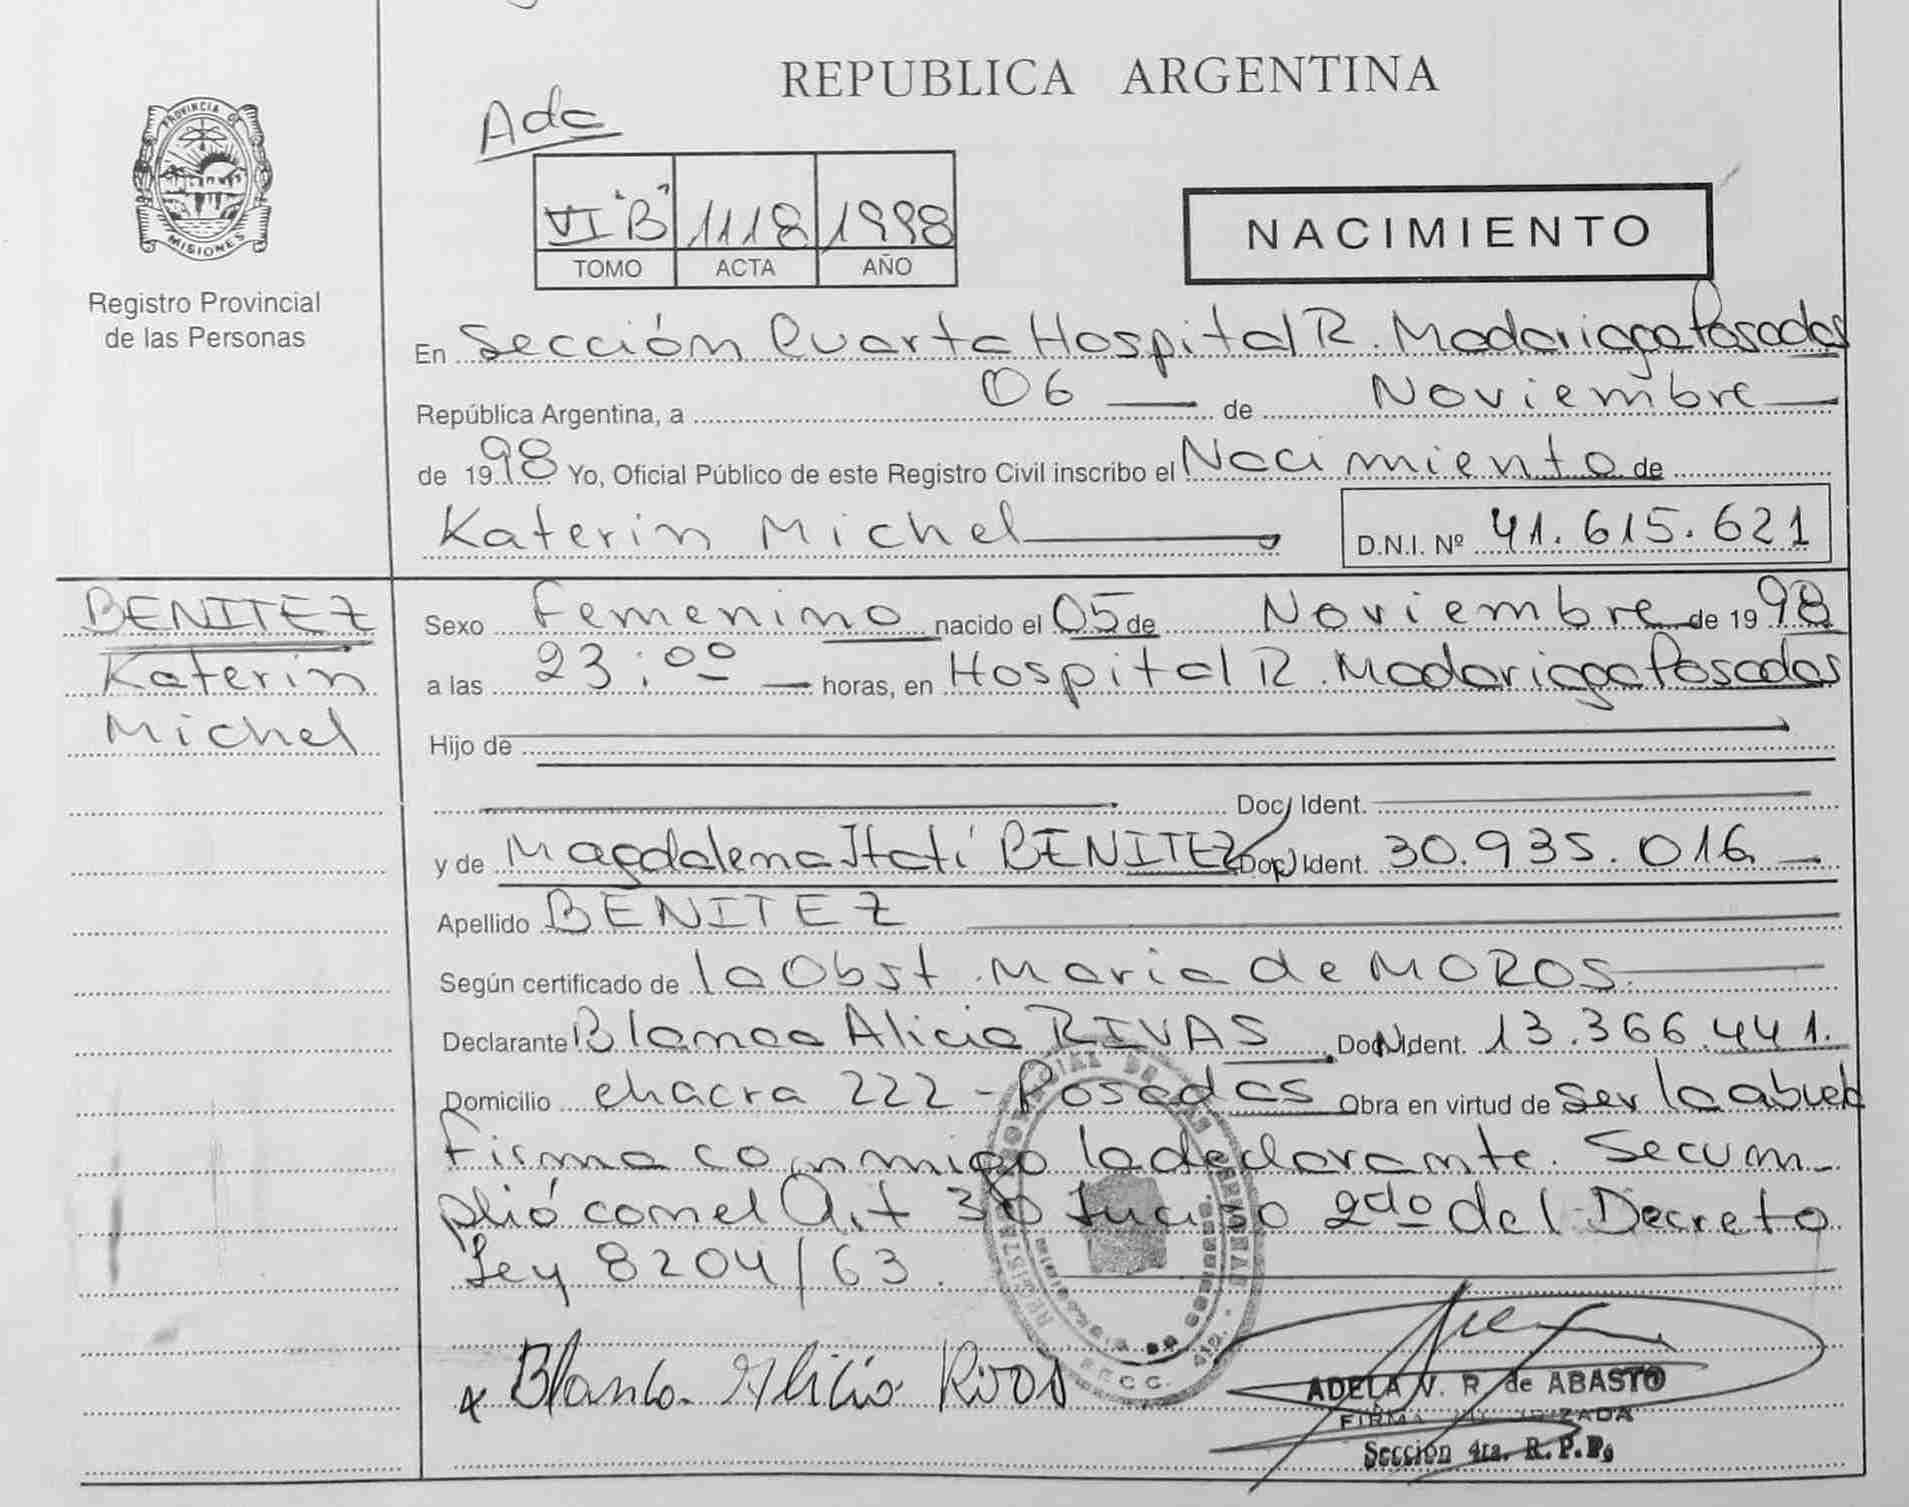 REPUBLICA ARGENTINA
PROVINCIA DE
MISIONES
Registro Provincial
de las Personas
Ada
VI "B" 1118 1998
TOMO ACTA AÑO
NACIMIENTO
En Sección Cuarta Hospital R. Madariaga Posadas
República Argentina, a 06 de Noviembre
de 1998 Yo, Oficial Público de este Registro Civil inscribo el Nacimiento de
Katerin Michel
D.N.I. Nº 41.615.621
BENITEZ
Katerin
Michel
Sexo Femenino nacido el 05 de Noviembre de 1998
a las 23:00 horas, en Hospital R. Madariaga Posadas
Hijo de
Doc. Ident.
y de Magdalena Itatí BENITEZ Doc. Ident. 30.935.016
Apellido BENITEZ
Según certificado de la Obst. Maria de MOROS
Declarante Blanca Alicia RIVAS Doc. Ident. 13.366.441.
Domicilio chacra 222 - Posadas Obra en virtud de ser la abuela
Firma conmigo la declarante. Se cum-
plió con el Art 30 Inciso 2do del Decreto
Ley 8204/63.
x Blanca Alicia Rivas
ADELA V. R. de ABASTO
FIRMA AUTORIZADA
Sección 4ta. R. P. P.